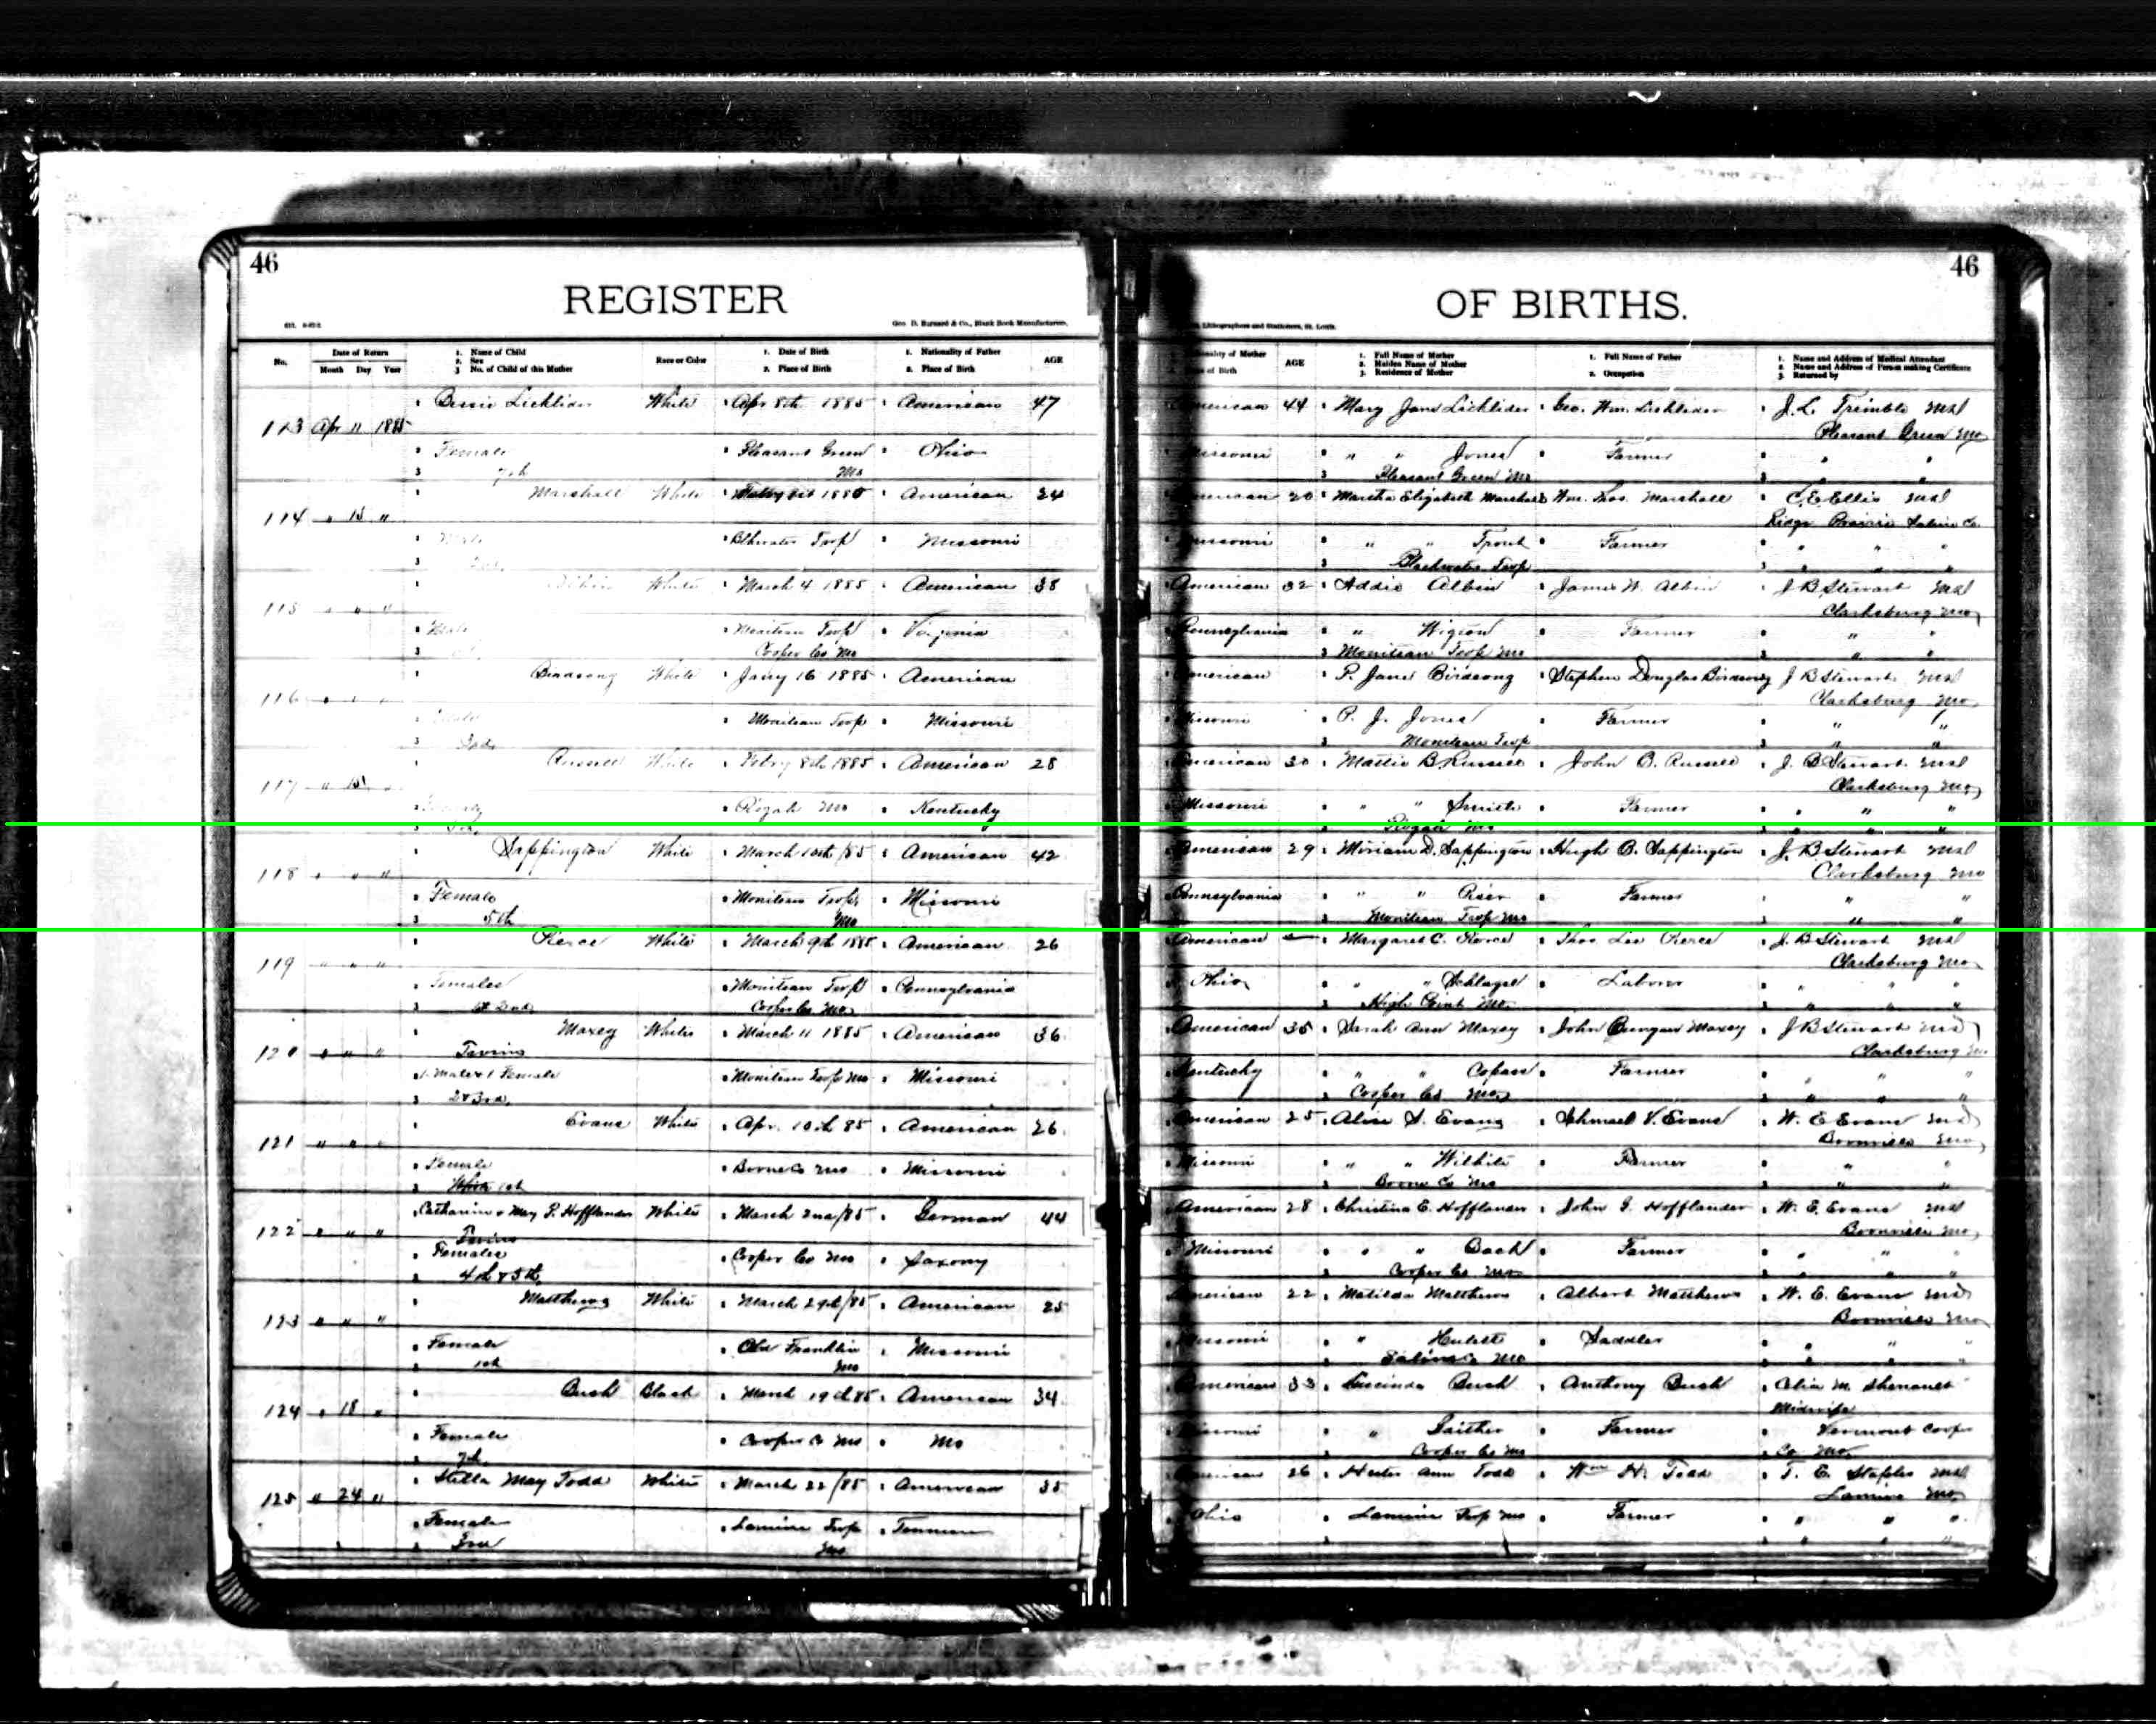 46
REGISTER
Geo. D. Barnard & Co., Blank Book Manufacturers,
No. Date of Return Month Day Year 1. Name of Child 2. Sex 3. No. of Child of this Mother Race or Color 1. Date of Birth 2. Place of Birth 1. Nationality of Father 2. Place of Birth AGE
113 Apr 11 1885 Bessie Lichlider White Apr 8th 1885 American 47
2 Female Pleasant Green Ohio
3 7th Mo
114 " 15 " Marshall White 1885 American 24
Male Blkwater Twp Missouri
115 " " " Albin White March 4 1885 American 38
Male Moniteau Twp Virginia
Cooper Co Mo
116 " " " Birdsong White Jany 16 1885 American
Moniteau Twp Missouri
117 " 15 Russell White Febry 8th 1885 American 28
Mo Kentucky
118 " " " Sappington White March 10th/85 American 42
2 Female Moniteau Twp Missouri
3 5th Mo
119 " " " Pierce White March 9th 1885 American 26
Females Moniteau Twp Pennsylvania
3 Cooper Co Mo
120 " " " Maxey White March 11 1885 American 36
Twins
1 Male & 1 Female Moniteau Twp Mo Missouri
3 2 & 3rd
121 " " " Evans White Apr. 10th 85 American 26
2 Female Boone Co Mo Missouri
3 White 1st
122 " " " Catharine & May P. Hofflander White March 2nd/85 German 44
Twins
2 Females Cooper Co Mo Saxony
3 4th & 5th
123 " " " Matthews White March 29th/85 American 25
2 Female Old Franklin Missouri
3 1st Mo
124 " 18 " Bush Black March 19th 85 American 34
2 Female Cooper Co Mo Mo
3 7th
125 " 24 " Stella May Todd White March 22/85 American 35
2 Female Lamine Twp
3 Mo
46
OF BIRTHS.
Lithographers and Stationers, St. Louis.
Nationality of Mother Place of Birth AGE 1. Full Name of Mother 2. Maiden Name of Mother 3. Residence of Mother 1. Full Name of Father 2. Occupation 1. Name and Address of Medical Attendant 2. Name and Address of Person making Certificate 3. Returned by
American 44 Mary Jane Lichlider Geo. Wm. Lichlider J. L. Trimble Md
Pleasant Green Mo
Missouri " " Jones Farmer " "
3 Pleasant Green Mo
American 20 Martha Elizabeth Marshall Wm. Thos. Marshall C. E. Ellis Md
Ridge Prairie Saline Co
Missouri " " Trout Farmer " " "
3 Blackwater Twp
American 32 Addie Albin James W. Albin J B Stewart Md
Clarksburg Mo
Pennsylvania " Farmer " "
3 Moniteau Twp Mo
American P. Jane Birdsong Stephen Douglas Birdsong J B Stewart Md
Clarksburg Mo
Missouri P. J. Jones Farmer " "
3 Moniteau Twp
American 30 Mattie B. Russell John B. Russell J. B Stewart Md
Clarksburg Mo
Missouri " " Smith Farmer " " "
American 29 Miriam D. Sappington Hugh B. Sappington J. B Stewart Md
Clarksburg Mo
Pennsylvania " " Farmer " "
3 Moniteau Twp Mo
American — Margaret C. Pierce Thos. Lee Pierce J. B Stewart Md
Clarksburg Mo
Ohio " " Farmer Laborer " " "
3 High Point Mo
American 35 Sarah Ann Maxey John Bunyan Maxey J B Stewart Md
Clarksburg Mo
Kentucky " " Copass Farmer " " "
3 Cooper Co Mo
American 25 Alice S. Evans Ishmael V. Evans W. E Evans Md
Boonville Mo
Missouri " " Wilhite Farmer " "
3 Boone Co Mo
American 28 Christina E. Hofflander John G. Hofflander W. E. Evans Md
Boonville Mo
Missouri " " Back Farmer " " "
3 Cooper Co Mo
American 22 Matilda Matthews Albert Matthews W. E. Evans Md
Boonville Mo
Missouri " Saddler " " "
3 Saline Co Mo
American 33 Lucinda Bush Anthony Bush Celia M. Shenault
Midwife
Missouri " Gaither Farmer Vermont Cooper
3 Cooper Co Mo Co Mo
American 26 Hester Ann Todd Wm H. Todd T. E. Staples Md
Lamine Mo
Ohio Lamine Twp Mo Farmer " " "